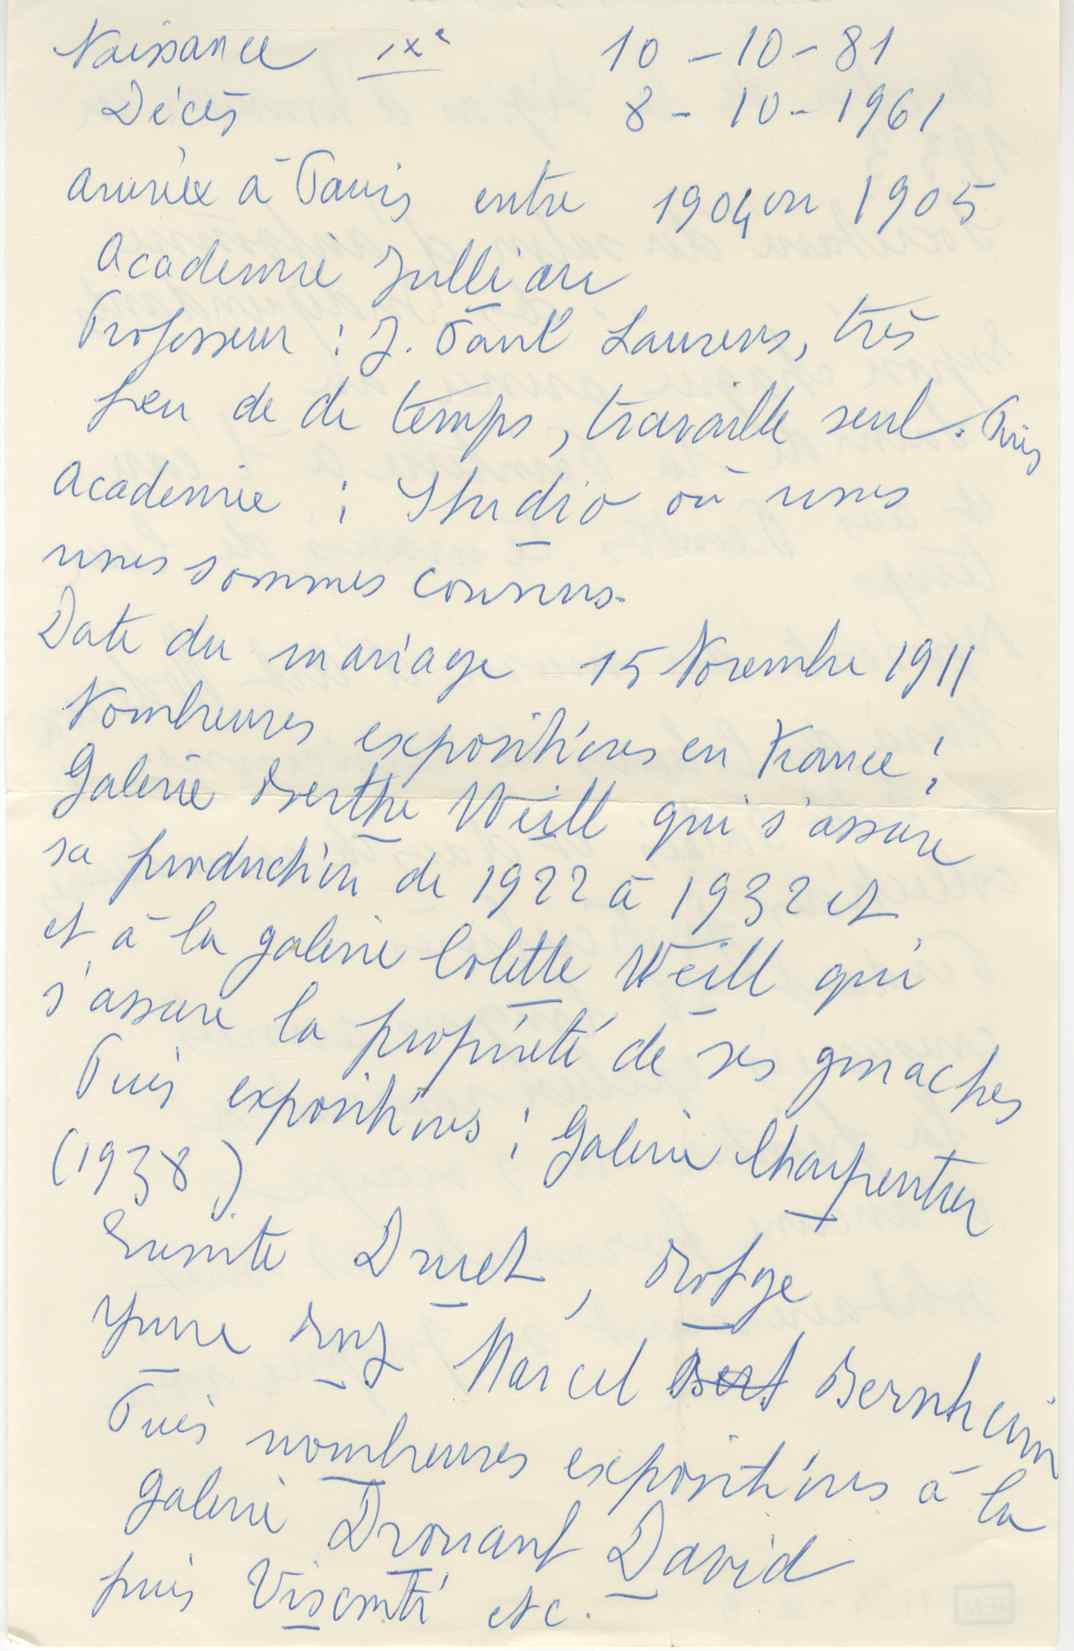 Naissance IXe 10-10-81
Décès 8-10-1961
arrivée à Paris entre 1904 ou 1905
Academie Jullian
Professeur : J. Paul Laurens, très
peu de de temps, travaille seul. Puis
Academie : Studio où nous
nous sommes connus.
Date du mariage 15 Novembre 1911
Nombreuses expositions en France :
Galerie Berthe Weill qui s'assure
sa production de 1922 à 1932 et
et à la galerie Colette Weill qui
s'assure la propriété de ses gouaches
Puis expositions : Galerie Charpentier
(1938)
Ensuite Druet, Drotge
Yvre Marcel Bert Bernheim
Puis nombreuses expositions à la
galerie Drouant David
puis Visconti etc.